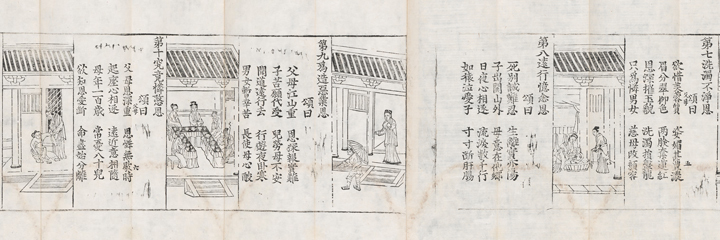 第七洗濯不淨恩
頌曰
眉分翠柳色 兩臉奪蓮紅
恩深摧玉貌 洗濯損盤龍
只爲憐男女 慈母改顔容
第八遠行憶念恩
頌曰
死別誠難忍 生離實亦傷
子出關山外 母意在他鄉
日夜心相逐 流淚數千行
如猿泣愛子 寸寸斷肝腸
第九爲造惡業恩
頌曰
父母江山重 恩深報實難
子苦願代受 兒勞母不安
聞道遠行去 行遊夜臥寒
男女暫辛苦 長使母心酸
第十究竟憐愍恩
頌曰
父母恩深重 恩憐無歇時
起座心相逐 遠近意相隨
母年一百歲 常憂八十兒
欲知恩愛斷 命盡始分離